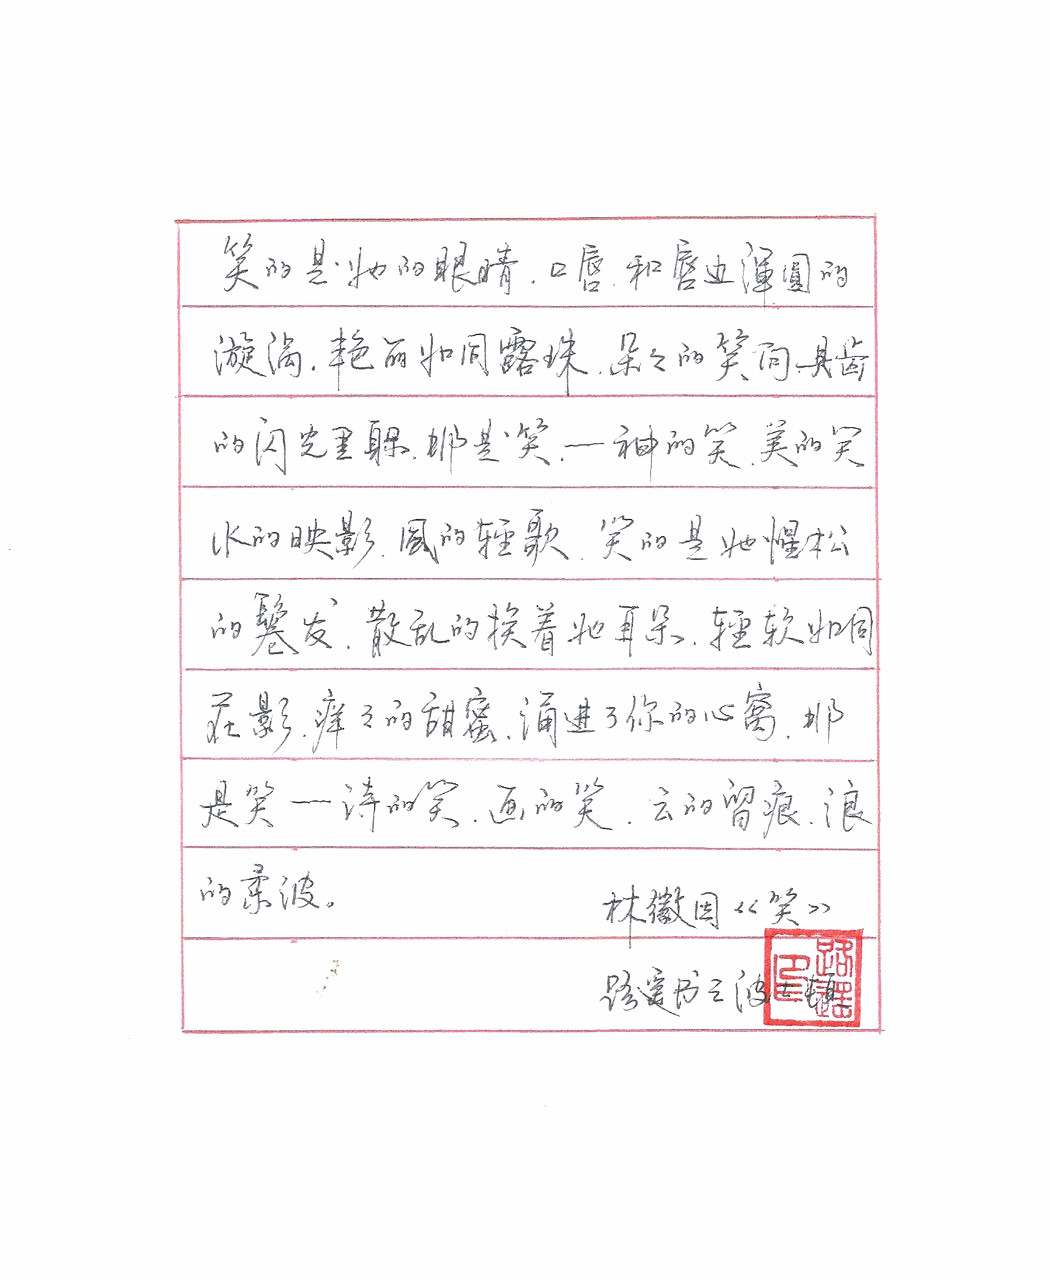 笑的是她的眼睛.口唇.和唇边渾圓的
漩涡.艳丽如同露珠.朵々的笑向.贝齿
的闪光里躲.那是笑.一神的笑.美的笑
水的映影.風的轻歌.笑的是她惺松
的鬈发.散乱的挨着她耳朵.轻软如同
花影.痒々的甜蜜.涌进了你的心窝.那
是笑一诗的笑.画的笑.云的留痕.浪
的柔波。
林徽因《笑》
路遥书